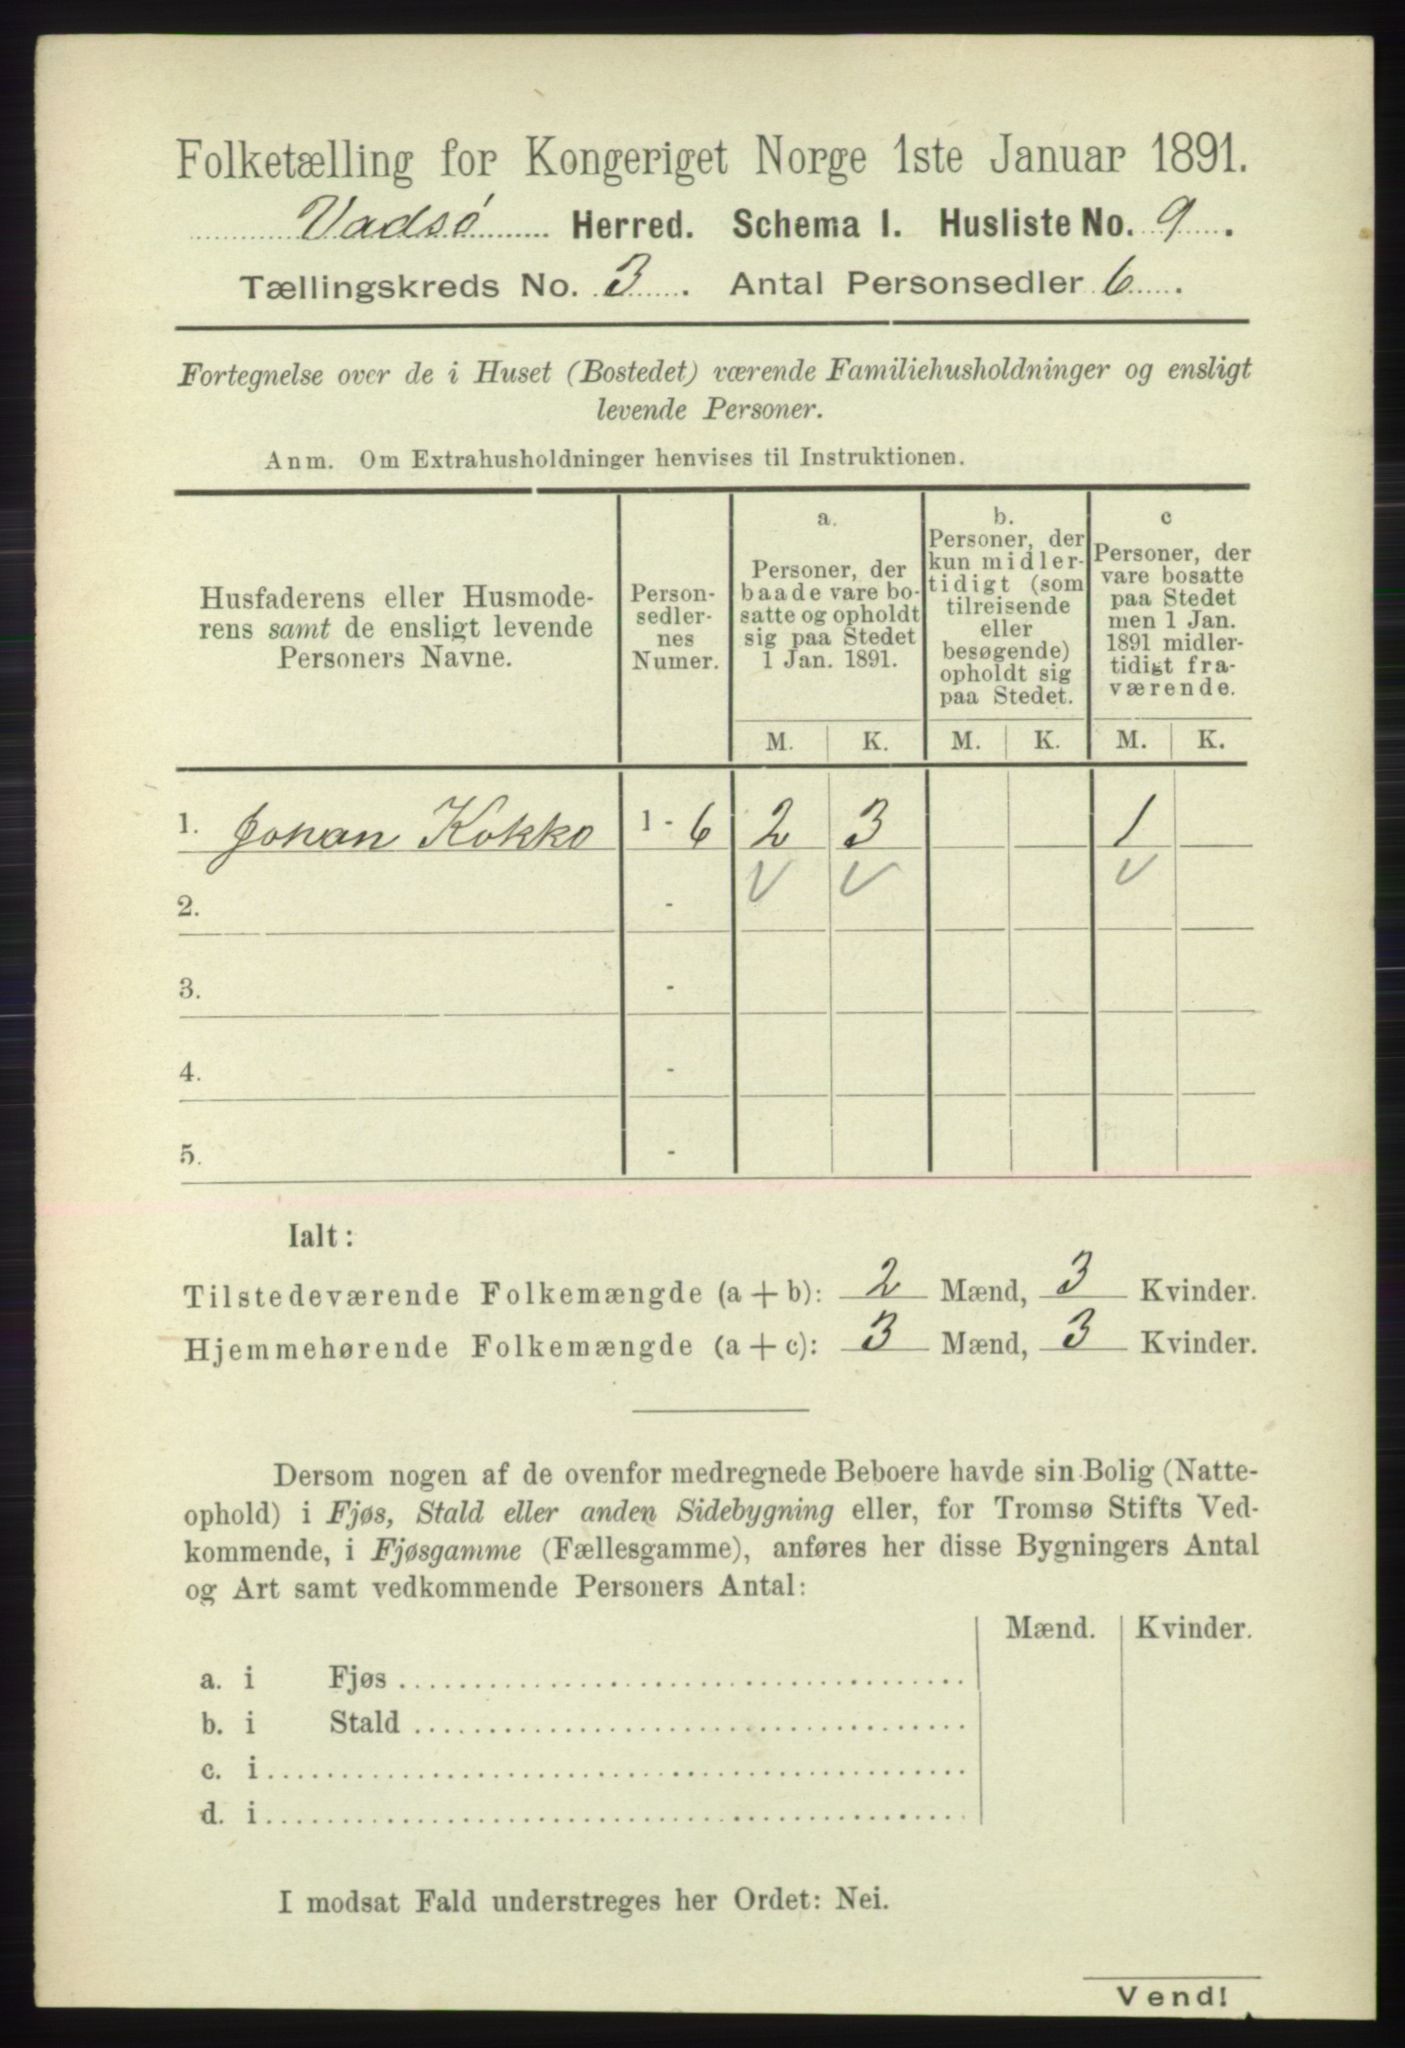 Folketælling for Kongeriget Norge 1ste Januar 1891.
Vadsö Herred. Schema I. Husliste No. 9.
Tællingskreds No. 3. Antal Personsedler 6.
Fortegnelse over de i Huset (Bostedet) værende Familiehusholdninger og ensligt
levende Personer.
Anm. Om Extrahusholdninger henvises til Instruktionen.
Husfaderens eller Husmode-
rens samt de ensligt levende
Personers Navne.
Person-
sedler-
nes
Numer.
a.
Personer, der
baade vare bo-
satte og opholdt
sig paa Stedet
1 Jan. 1891.
b.
Personer, der
kun midler-
tidigt (som
tilreisende
eller
besøgende)
opholdt sig
paa Stedet.
c
Personer, der
vare bosatte
paa Stedet
men 1 Jan.
1891 midler-
tidigt fra-
værende.
M. K. M. K. M. K.
1. Johan Kokko 1 - 6 2 3 1
2. -
3. -
4. -
5. -
Ialt:
Tilstedeværende Folkemængde (a + b): 2 Mænd, 3 Kvinder.
Hjemmehørende Folkemængde (a + c): 3 Mænd, 3 Kvinder.
Dersom nogen af de ovenfor medregnede Beboere havde sin Bolig (Natte-
ophold) i Fjøs, Stald eller anden Sidebygning eller, for Tromsø Stifts Ved-
kommende, i Fjøsgamme (Fællesgamme), anføres her disse Bygningers Antal
og Art samt vedkommende Personers Antal:
Mænd. Kvinder.
a. i Fjøs
b. i Stald
c. i
d. i
I modsat Fald understreges her Ordet: Nei.
Vend!